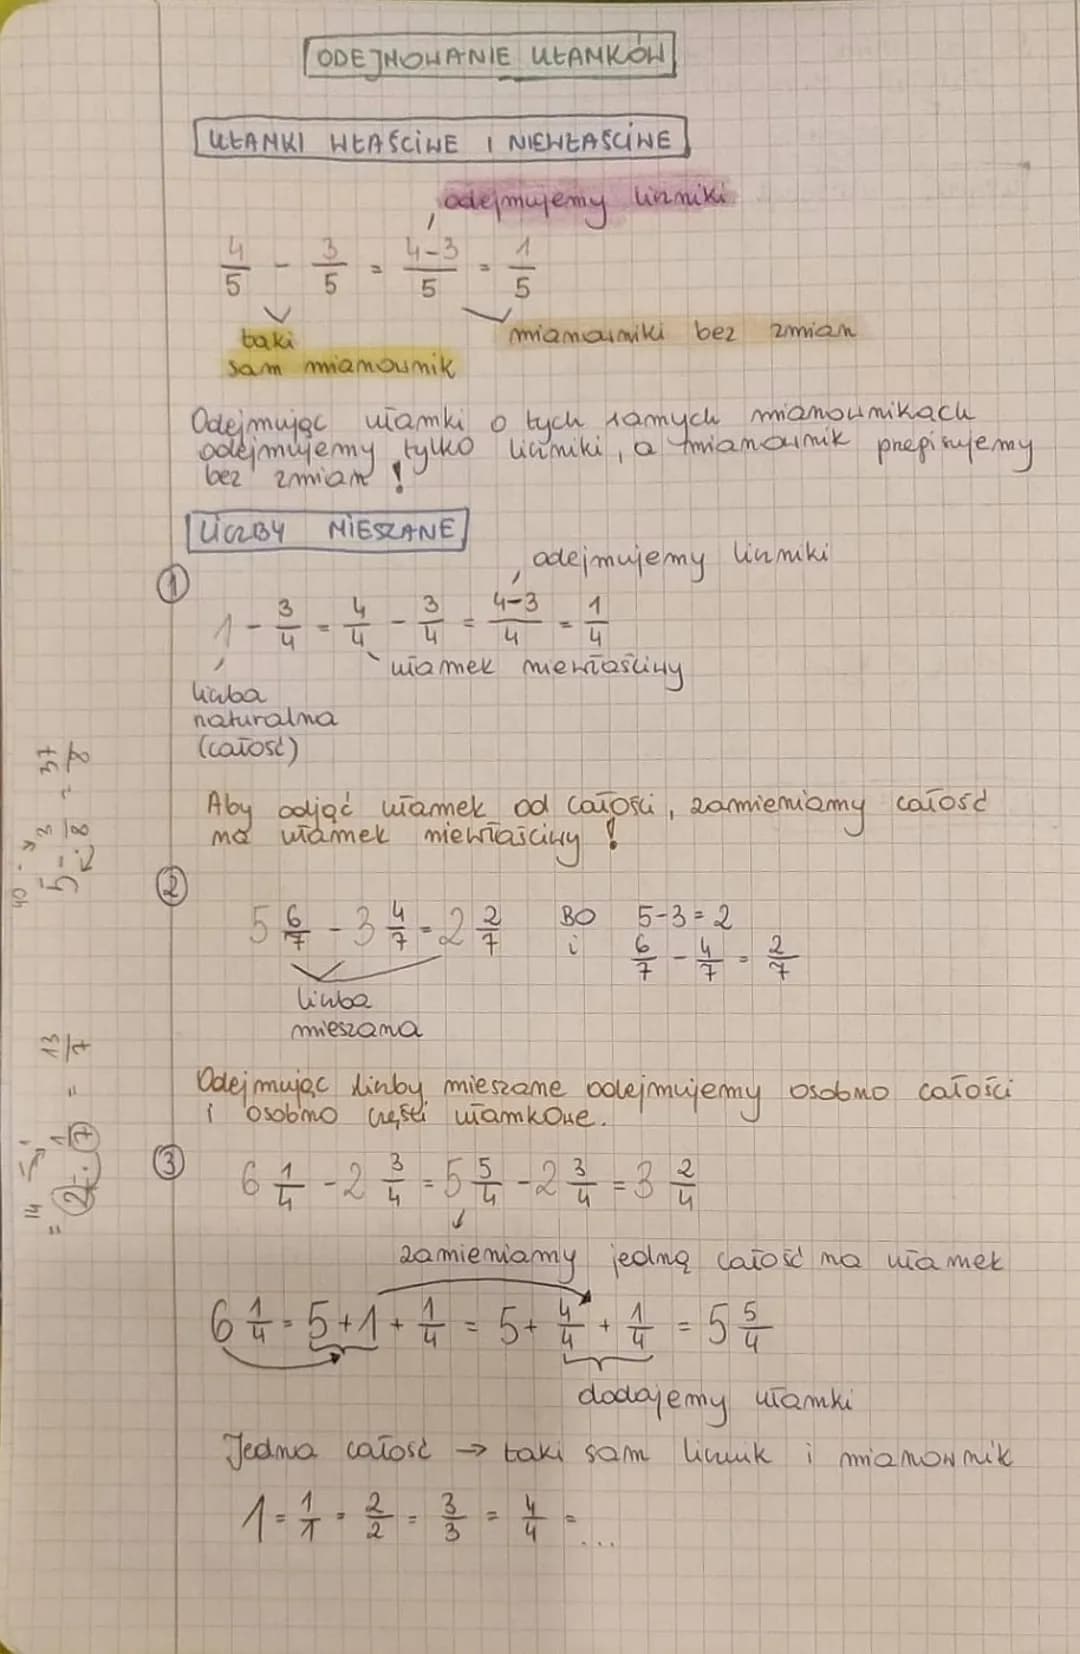 ODEJMOWANIE UŁAMKÓW
UŁAMKI WŁAŚCIWE I NIEWŁAŚCIWE
odejmujemy liczniki
4/5 - 3/5 = 4-3/5 = 1/5
taki
sam mianownik
mianowniki bez zmian
Odejmując ułamki o tych samych mianownikach
odejmujemy tylko liczniki, a mianownik przepisujemy
bez zmian!
LICZBY MIESZANE
①
odejmujemy liczniki
1 - 3/4 = 4/4 - 3/4 = 4-3/4 = 1/4
ułamek niewłaściwy
liczba
naturalna
(całość)
Aby odjąć ułamek od całości, zamieniamy całość
na ułamek niewłaściwy!
②
5 6/7 - 3 4/7 = 2 2/7 BO 5-3=2
i 6/7 - 4/7 = 2/7
liczba
mieszana
Odejmując liczby mieszane odejmujemy osobno całości
i osobno części ułamkowe.
③
6 1/4 - 2 3/4 = 5 5/4 - 2 3/4 = 3 2/4
zamieniamy jedną całość na ułamek
6 1/4 = 5+1+ 1/4 = 5+ 4/4 + 1/4 = 5 5/4
dodajemy ułamki
Jedna całość → taki sam licznik i mianownik
1 = 1/1 = 2/2 = 3/3 = 4/4 = ...
40
5 - 3/8 = 37/8
14
= 2 - 1/7 = 13/7